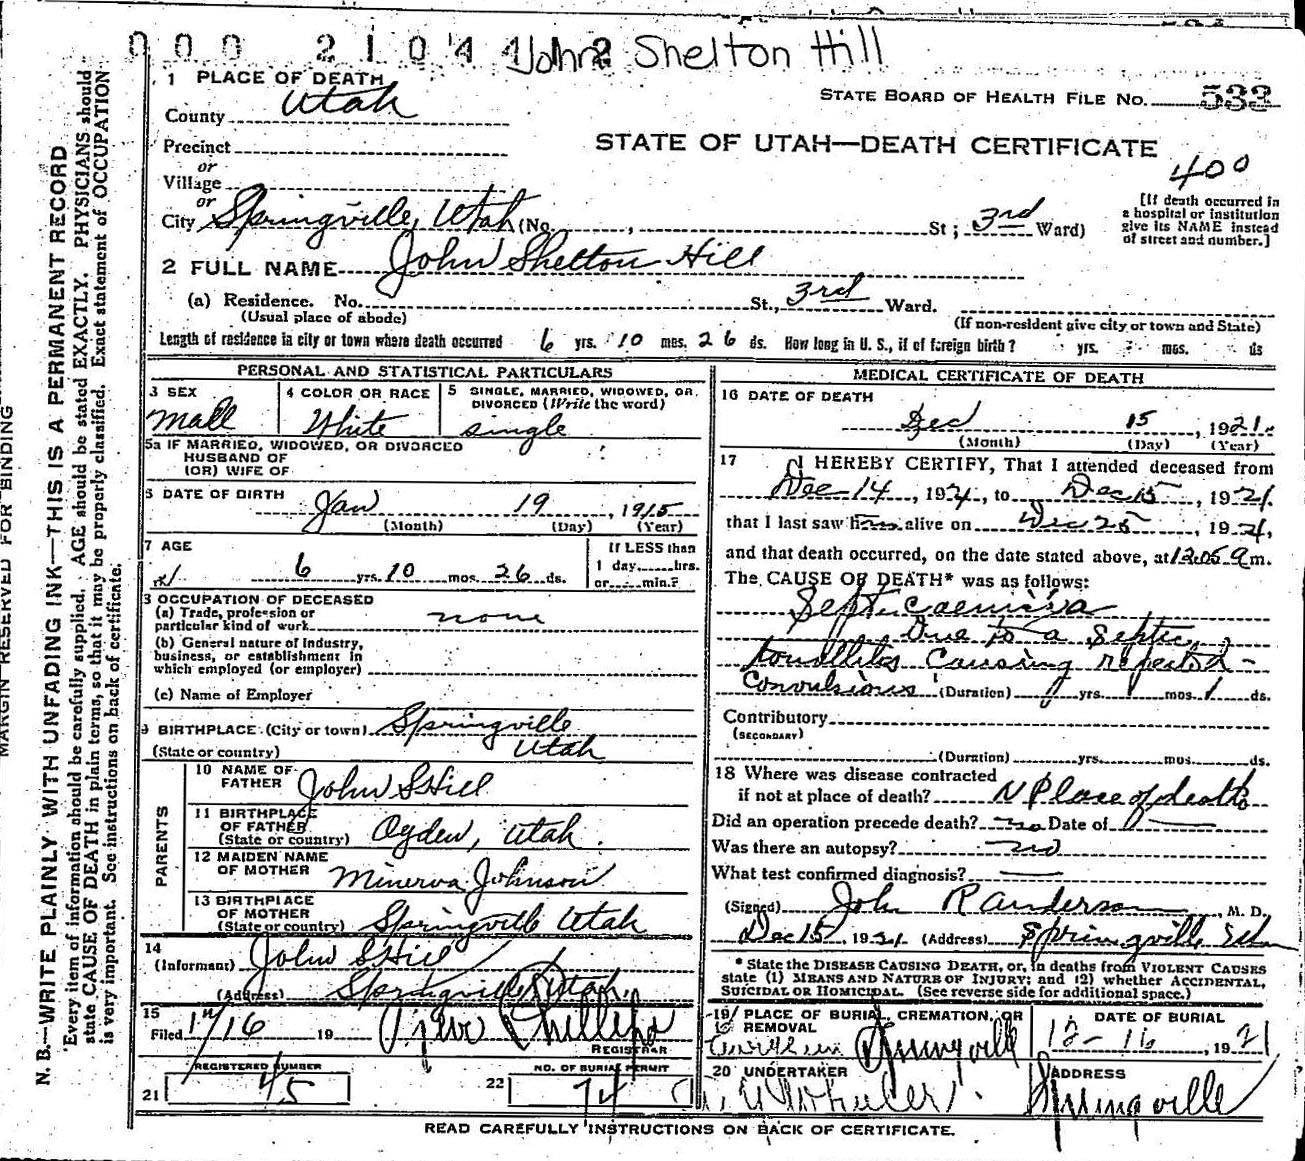 000 210442 John Shelton Hill
1 PLACE OF DEATH
County Utah
STATE BOARD OF HEALTH FILE NO. 533
Precinct
STATE OF UTAH—DEATH CERTIFICATE
or
Village
400
or
City Springville, Utah (No. , St; 3rd Ward)
[If death occurred in
a hospital or institution
give its NAME instead
of street and number.]
2 FULL NAME John Shelton Hill
(a) Residence. No. St., 3rd Ward.
(Usual place of abode)
(If non-resident give city or town and State)
Length of residence in city or town where death occurred 6 yrs. 10 mos. 26 ds. How long in U. S., if of foreign birth? yrs. mos. ds
PERSONAL AND STATISTICAL PARTICULARS
3 SEX
Male
4 COLOR OR RACE
White
5 SINGLE, MARRIED, WIDOWED, OR
DIVORCED (Write the word)
single
5a IF MARRIED, WIDOWED, OR DIVORCED
HUSBAND OF
(OR) WIFE OF
6 DATE OF BIRTH
Jan 19, 1915
(Month) (Day) (Year)
7 AGE
6 yrs. 10 mos. 26 ds.
If LESS than
1 day hrs.
or min.?
8 OCCUPATION OF DECEASED
(a) Trade, profession or
particular kind of work none
(b) General nature of Industry,
business, or establishment in
which employed (or employer)
(c) Name of Employer
9 BIRTHPLACE (City or town) Springville
(State or country) Utah
PARENTS
10 NAME OF
FATHER John S Hill
11 BIRTHPLACE
OF FATHER
(State or country) Ogden, Utah.
12 MAIDEN NAME
OF MOTHER Minerva Johnson
13 BIRTHPLACE
OF MOTHER
(State or country) Springville Utah
14
(Informant) John S Hill
(Address) Springville Utah.
15
Filed 12/16 19 Phillips
REGISTRAR
REGISTERED NUMBER
21 45
NO. OF BURIAL PERMIT
22 74
MEDICAL CERTIFICATE OF DEATH
16 DATE OF DEATH
Dec 15, 1921.
(Month) (Day) (Year)
17 I HEREBY CERTIFY, That I attended deceased from
Dec 14, 1921, to Dec 15, 1921.
that I last saw him alive on Dec 25, 1921,
and that death occurred, on the date stated above, at 12.05 a m.
The CAUSE OF DEATH* was as follows:
Septicaemia
Due to a Septic
tonsillitis causing repeated -
Convulsions (Duration) yrs. mos. 1 ds.
Contributory
(SECONDARY)
(Duration) yrs. mos. ds.
18 Where was disease contracted
if not at place of death? Place of death
Did an operation precede death? no Date of
Was there an autopsy? no
What test confirmed diagnosis?
(Signed) John R Anderson, M. D.
Dec 15, 1921 (Address) Springville Utah
* State the DISEASE CAUSING DEATH, or, in deaths from VIOLENT CAUSES
state (1) MEANS AND NATURE OF INJURY; and (2) whether ACCIDENTAL,
SUICIDAL OR HOMICIDAL. (See reverse side for additional space.)
19 PLACE OF BURIAL, CREMATION, OR
REMOVAL
Springville
DATE OF BURIAL
12-16, 1921
20 UNDERTAKER
Wheeler
ADDRESS
Springville
READ CAREFULLY INSTRUCTIONS ON BACK OF CERTIFICATE.
MARGIN RESERVED FOR BINDING
N. B.—WRITE PLAINLY WITH UNFADING INK—THIS IS A PERMANENT RECORD
Every item of information should be carefully supplied. AGE should be stated EXACTLY. PHYSICIANS should
state CAUSE OF DEATH in plain terms, so that it may be properly classified. Exact statement of OCCUPATION
is very important. See instructions on back of certificate.